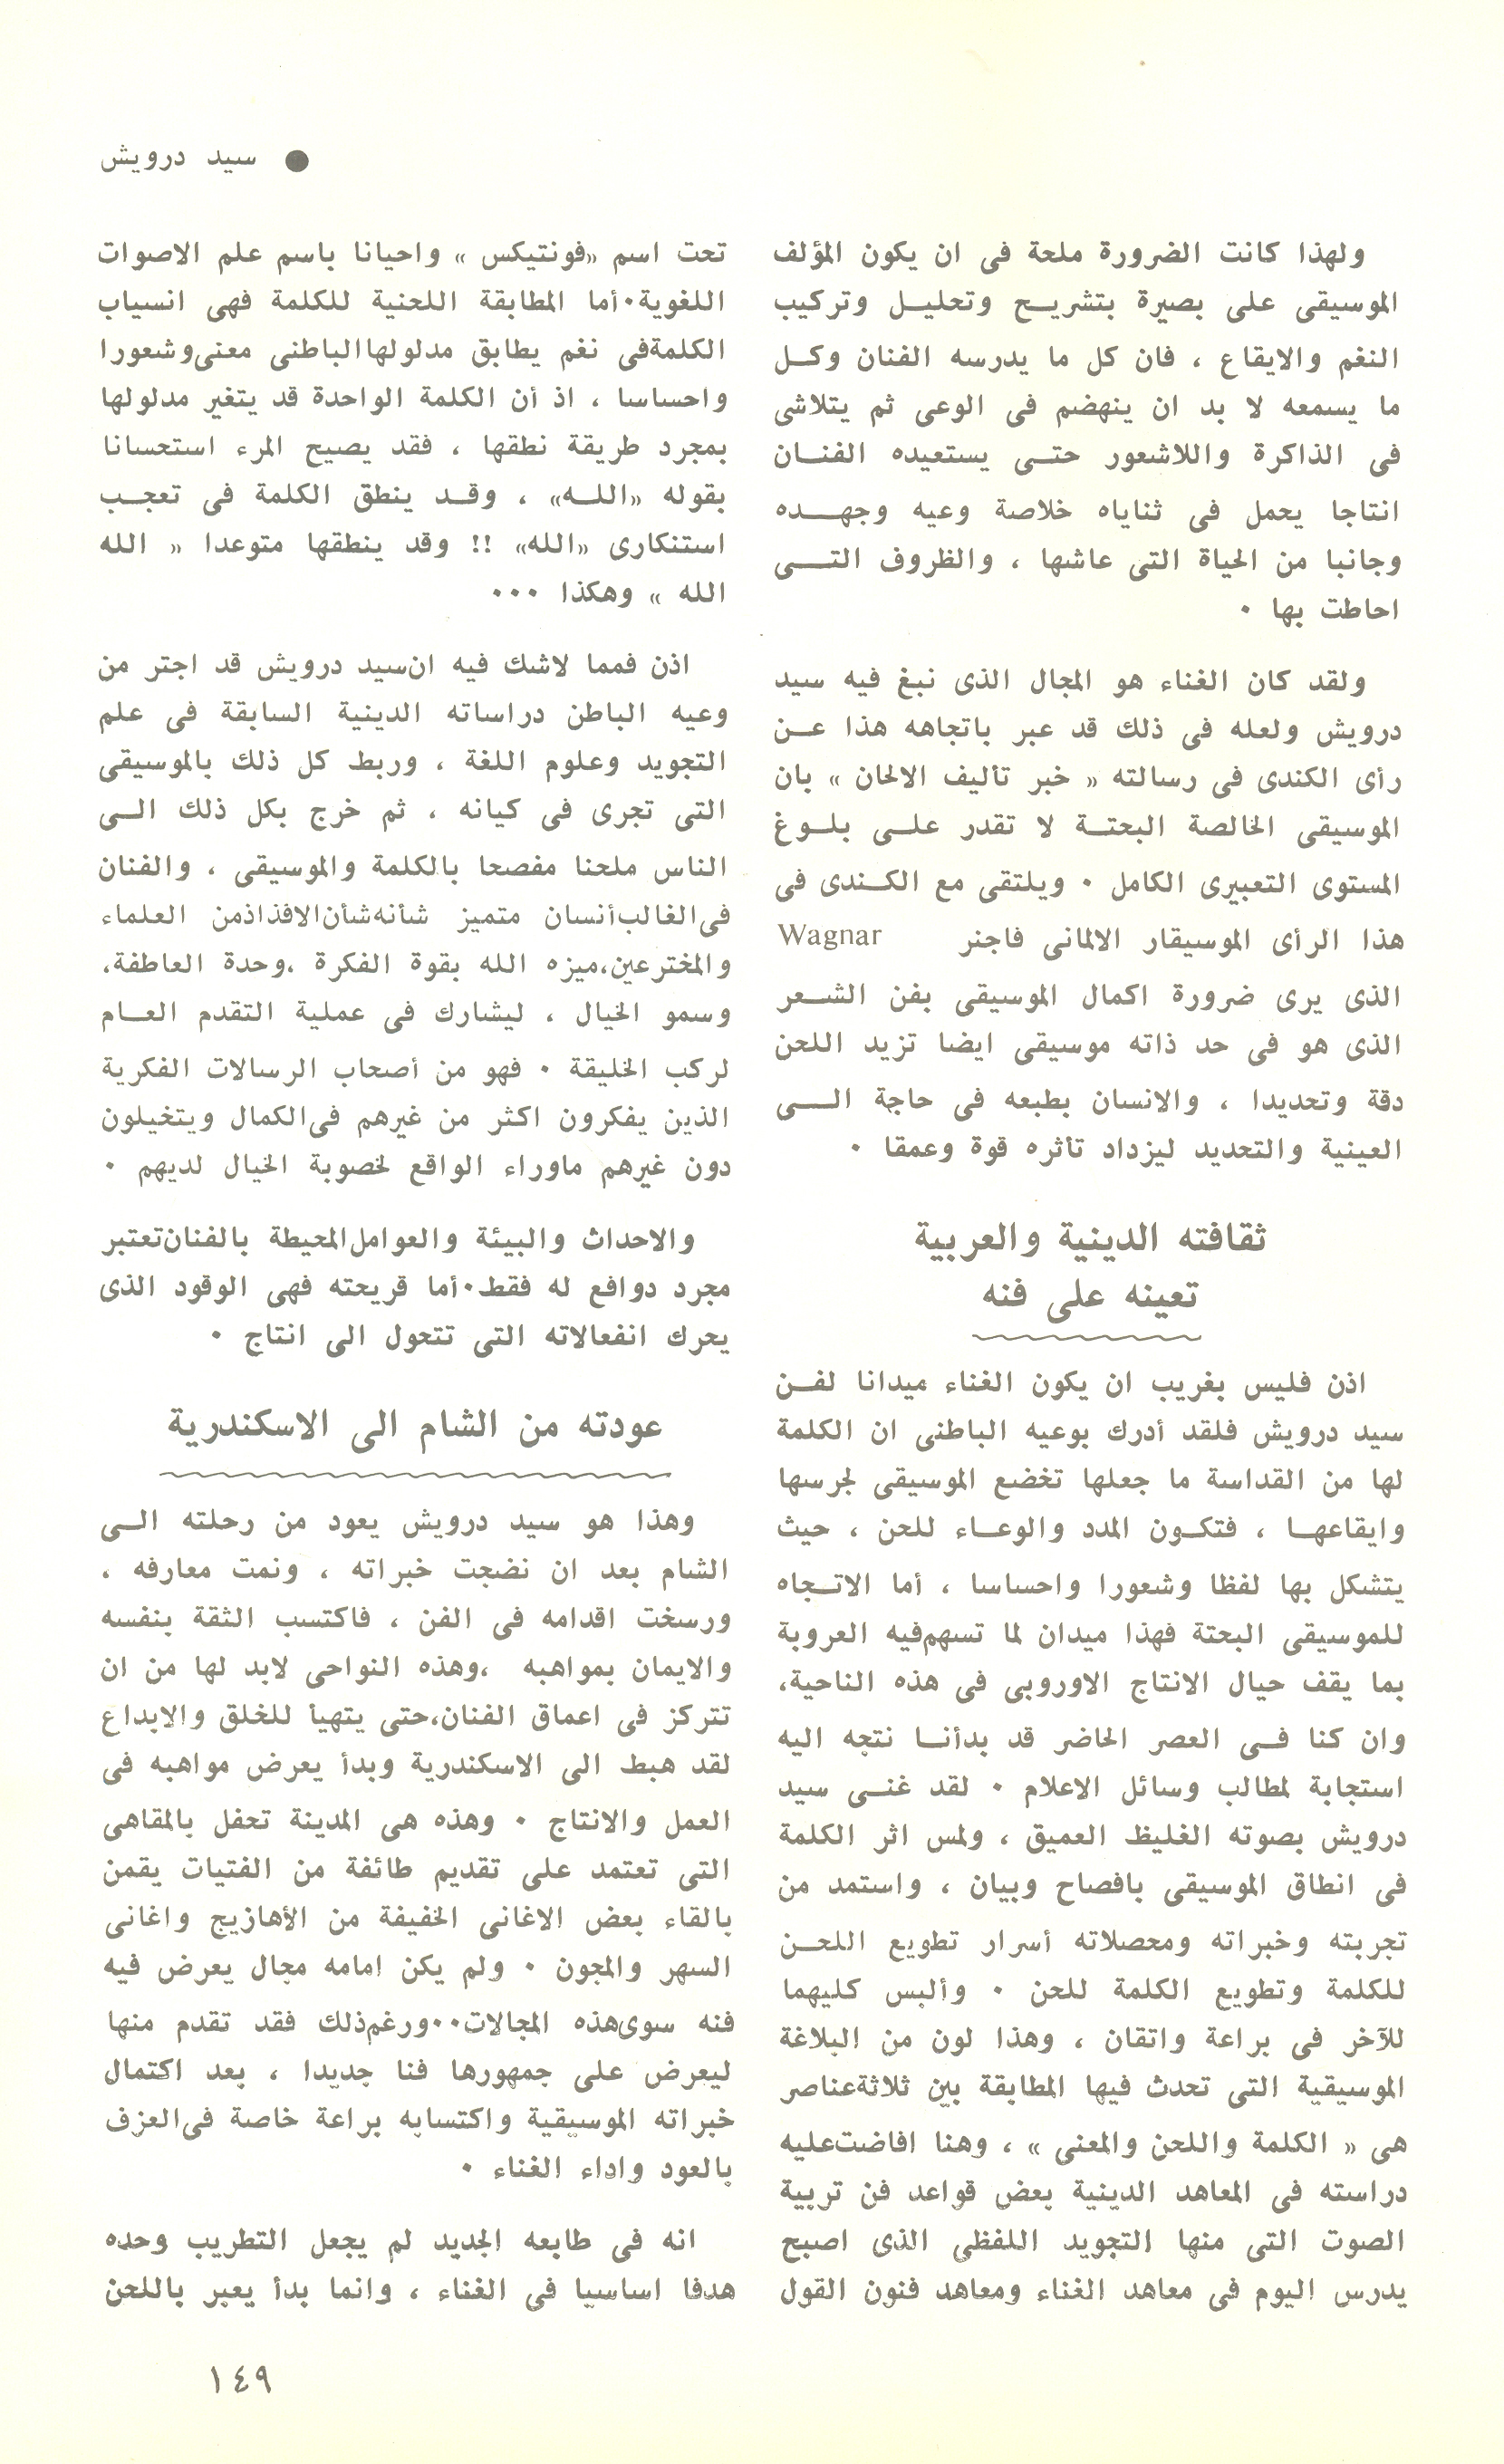 ● سيد درويش
ولهذا كانت الضرورة ملحة فى ان يكون المؤلف
الموسيقى على بصيرة بتشريح وتحليل وتركيب
النغم والايقاع ، فان كل ما يدرسه الفنان وكل
ما يسمعه لا بد ان ينهضم فى الوعى ثم يتلاشى
فى الذاكرة واللاشعور حتى يستعيده الفنان
انتاجا يحمل فى ثناياه خلاصة وعيه وجهده
وجانبا من الحياة التى عاشها ، والظروف التى
احاطت بها ٠
ولقد كان الغناء هو المجال الذى نبغ فيه سيد
درويش ولعله فى ذلك قد عبر باتجاهه هذا عن
رأى الكندى فى رسالته « خبر تأليف الالحان » بان
الموسيقى الخالصة البحتة لا تقدر على بلوغ
المستوى التعبيرى الكامل ٠ ويلتقى مع الكندى فى
هذا الرأى الموسيقار الالمانى فاجنر Wagnar
الذى يرى ضرورة اكمال الموسيقى بفن الشعر
الذى هو فى حد ذاته موسيقى ايضا تزيد اللحن
دقة وتحديدا ، والانسان بطبعه فى حاجة الى
العينية والتحديد ليزداد تأثره قوة وعمقا ٠
ثقافته الدينية والعربية
تعينه على فنه
اذن فليس بغريب ان يكون الغناء ميدانا لفن
سيد درويش فلقد أدرك بوعيه الباطنى ان الكلمة
لها من القداسة ما جعلها تخضع الموسيقى لجرسها
وايقاعها ، فتكون المدد والوعاء للحن ، حيث
يتشكل بها لفظا وشعورا واحساسا ، أما الاتجاه
للموسيقى البحتة فهذا ميدان لما تسهم فيه العروبة
بما يقف حيال الانتاج الاوروبى فى هذه الناحية،
وان كنا فى العصر الحاضر قد بدأنا نتجه اليه
استجابة لمطالب وسائل الاعلام ٠ لقد غنى سيد
درويش بصوته الغليظ العميق ، ولمس اثر الكلمة
فى انطاق الموسيقى بافصاح وبيان ، واستمد من
تجربته وخبراته ومحصلاته أسرار تطويع اللحن
للكلمة وتطويع الكلمة للحن ٠ وألبس كليهما
للآخر فى براعة واتقان ، وهذا لون من البلاغة
الموسيقية التى تحدث فيها المطابقة بين ثلاثة عناصر
هى « الكلمة واللحن والمعنى » ، وهنا افاضت عليه
دراسته فى المعاهد الدينية بعض قواعد فن تربية
الصوت التى منها التجويد اللفظى الذى اصبح
يدرس اليوم فى معاهد الغناء ومعاهد فنون القول
تحت اسم «فونتيكس» واحيانا باسم علم الاصوات
اللغوية٠أما المطابقة اللحنية للكلمة فهى انسياب
الكلمة فى نغم يطابق مدلولها الباطنى معنى وشعورا
واحساسا ، اذ أن الكلمة الواحدة قد يتغير مدلولها
بمجرد طريقة نطقها ، فقد يصيح المرء استحسانا
بقوله «الله» ، وقد ينطق الكلمة فى تعجب
استنكارى «الله» !! وقد ينطقها متوعدا « الله
الله » وهكذا ٠٠٠
اذن فمما لاشك فيه ان سيد درويش قد اجتر من
وعيه الباطن دراساته الدينية السابقة فى علم
التجويد وعلوم اللغة ، وربط كل ذلك بالموسيقى
التى تجرى فى كيانه ، ثم خرج بكل ذلك الى
الناس ملحنا مفصحا بالكلمة والموسيقى ، والفنان
فى الغالب أنسان متميز شأنه شأن الافذاذ من العلماء
والمخترعين،ميزه الله بقوة الفكرة ،وحدة العاطفة،
وسمو الخيال ، ليشارك فى عملية التقدم العام
لركب الخليقة ٠ فهو من أصحاب الرسالات الفكرية
الذين يفكرون اكثر من غيرهم فى الكمال ويتخيلون
دون غيرهم ماوراء الواقع لخصوبة الخيال لديهم ٠
والاحداث والبيئة والعوامل المحيطة بالفنان تعتبر
مجرد دوافع له فقط٠أما قريحته فهى الوقود الذى
يحرك انفعالاته التى تتحول الى انتاج ٠
عودته من الشام الى الاسكندرية
وهذا هو سيد درويش يعود من رحلته الى
الشام بعد ان نضجت خبراته ، ونمت معارفه ،
ورسخت اقدامه فى الفن ، فاكتسب الثقة بنفسه
والايمان بمواهبه ،وهذه النواحى لابد لها من ان
تتركز فى اعماق الفنان،حتى يتهيأ للخلق والابداع
لقد هبط الى الاسكندرية وبدأ يعرض مواهبه فى
العمل والانتاج ٠ وهذه هى المدينة تحفل بالمقاهى
التى تعتمد على تقديم طائفة من الفتيات يقمن
بالقاء بعض الاغانى الخفيفة من الأهازيج واغانى
السهر والمجون ٠ ولم يكن امامه مجال يعرض فيه
فنه سوى هذه المجالات٠٠ورغم ذلك فقد تقدم منها
ليعرض على جمهورها فنا جديدا ، بعد اكتمال
خبراته الموسيقية واكتسابه براعة خاصة فى العزف
بالعود واداء الغناء ٠
انه فى طابعه الجديد لم يجعل التطريب وحده
هدفا اساسيا فى الغناء ، وانما بدأ يعبر باللحن
١٤٩